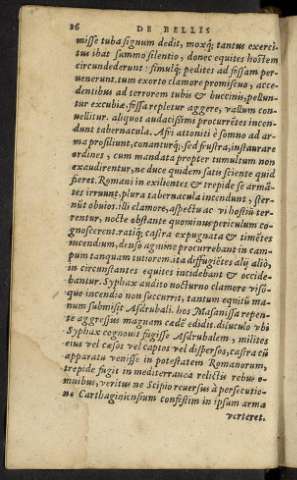 26 DE BELLIS
misse tuba signum dedit, moxq́; tantus exerci-
tus ibat summo silentio, donec equites hostem
circundederunt: simulq́; pedites ad fossam per-
uenerunt. tum exorto clamore promiscuo, acce-
dentibus ad terrorem tubis & buccinis, pellun-
tur excubiæ. fossa repletur aggere, vallum con-
uellitur. aliquot audacissimi procurrẽtes incen-
dunt tabernacula. Afri attoniti è somno ad ar-
ma prosiliunt, conanturq́; sed frustra, instaurare
ordines, cum mandata propter tumultum non
exaudirentur, ne duce quidem satis sciente quid
fieret. Romani in exilientes & trepide se armã-
tes irruunt, plura tabernacula incendunt, ster-
nũt obuios. illi clamore, aspectu ac vi hostiũ ter-
rentur, nocte obstante quominus periculum co-
gnoscerent. ratiq́; castra expugnata & timẽtes
incendium, denso agmine procurrebant in cam-
pum tanquam tutiorem. ita diffugiẽtes alij aliò,
in circunstantes equites incidebant & occide-
bantur. Syphax audito nocturno clamore visó-
que incendio non succurrit, tantum equitũ ma-
num submisit Asdrubali. hos Masanissa repen-
te aggressus magnam cædẽ edidit. diluculo vbi
Syphax cognouit fugisse Asdrubalem, milites
eius vel cæsos vel captos vel dispersos, castra cũ
apparatu venisse in potestatem Romanorum,
trepide fugit in mediterranea relictis rebus o-
mnibus, veritus ne Scipio reuersus à persecutio-
ne Carthaginiensium confestim in ipsum arma
verteret.